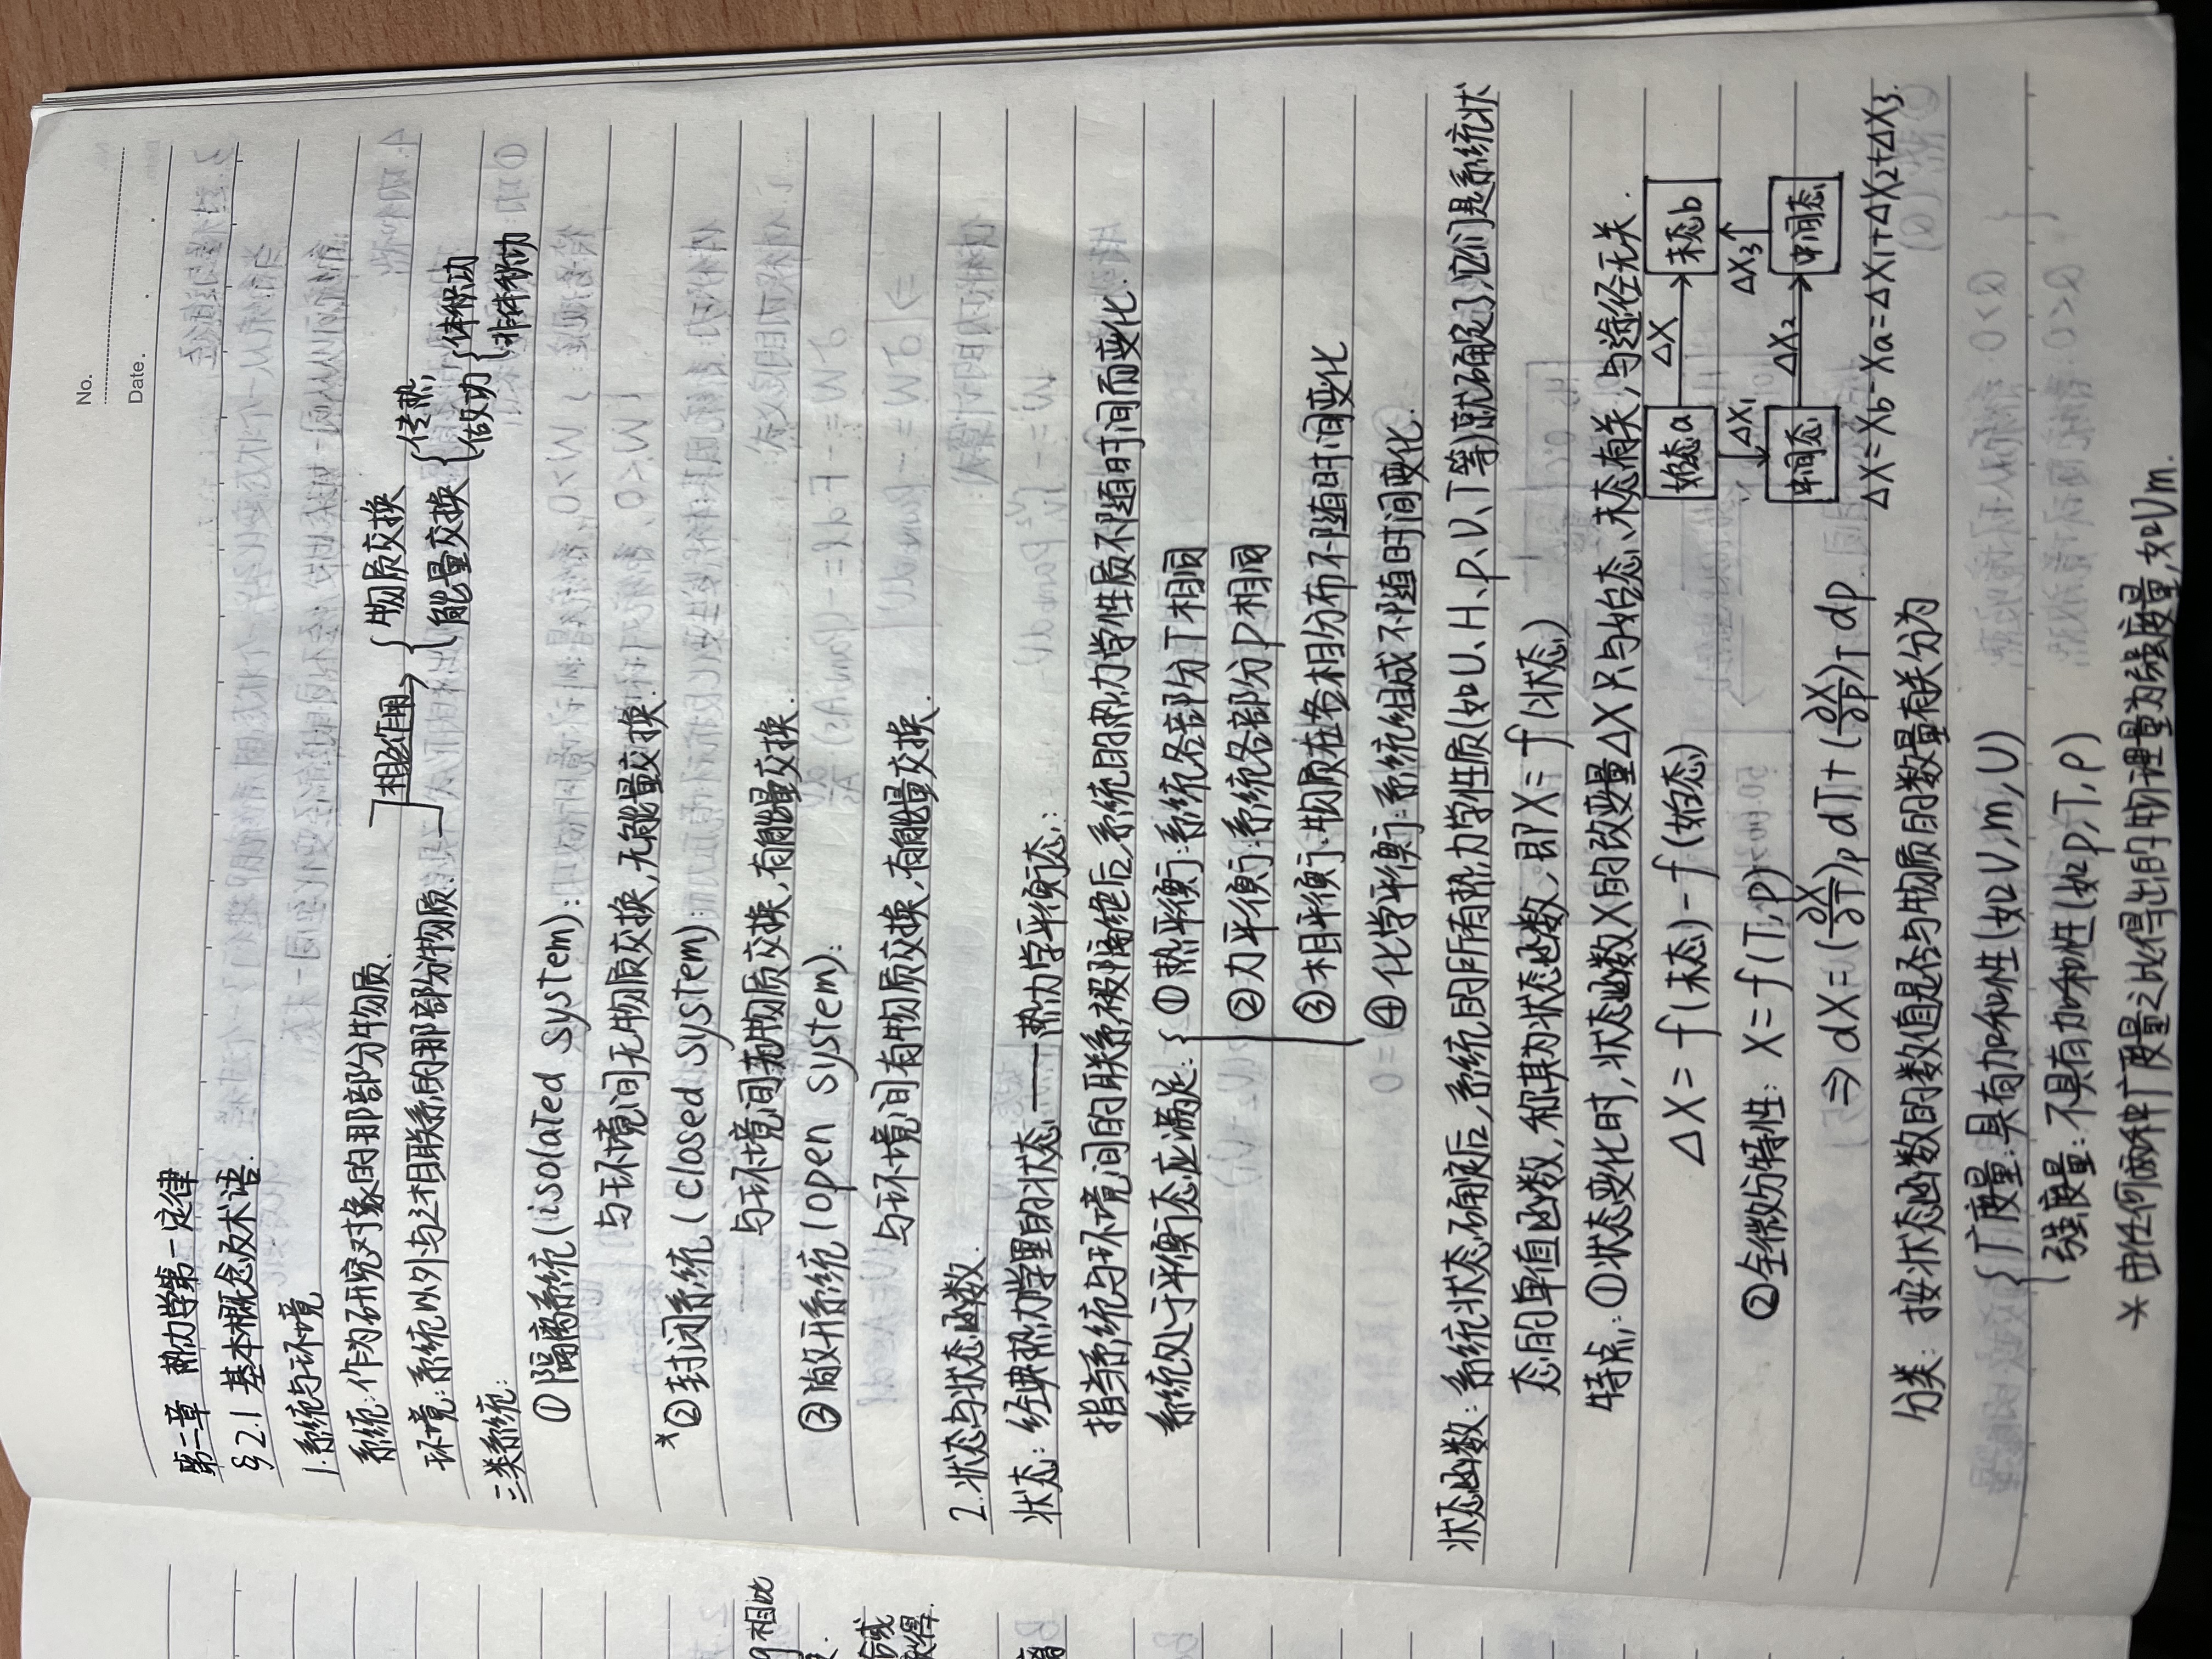 No.
Date.
第二章 热力学第一定律
§2.1 基本概念及术语.
1.系统与环境
系统:作为研究对象的那部分物质.
环境:系统以外与之相联系的那部分物质.
相互作用
物质交换
能量交换
传热
做功
体积功
非体积功
三类系统:
①隔离系统(isolated system):
与环境间无物质交换,无能量交换.
*②封闭系统(closed system):
与环境间无物质交换,有能量交换.
③敞开系统(open system):
与环境间有物质交换,有能量交换.
2.状态与状态函数.
状态:经典热力学里的状态——热力学平衡态:
指当系统与环境间的联系被隔绝后,系统的热力学性质不随时间而变化.
系统处于平衡态应满足:
①热平衡:系统各部分T相同
②力平衡:系统各部分p相同
③相平衡:物质在各相分布不随时间变化
④化学平衡:系统组成不随时间变化.
状态函数:系统状态确定后,系统的所有热力学性质(如U、H、p、V、T等)就确定了,它们是系统状
态的单值函数,称其为状态函数,即X=f(状态)
特点:①状态变化时,状态函数X的改变量ΔX只与始态、末态有关,与途径无关.
ΔX=f(末态)-f(始态)
始态a
ΔX
末态b
ΔX₁
ΔX₃
中间态
ΔX₂
中间态
②全微分特性: X=f(T,p)
⇒ dX=(∂X/∂T)ₚ dT+(∂X/∂p)_T dp.
ΔX=Xb-Xa=ΔX₁+ΔX₂+ΔX₃.
分类:按状态函数的数值是否与物质的数量有关分为
广度量:具有加和性(如V,m,U)
强度量:不具有加和性(如p,T,ρ)
*由任何两种广度量之比得出的物理量为强度量,如Vm.
相比